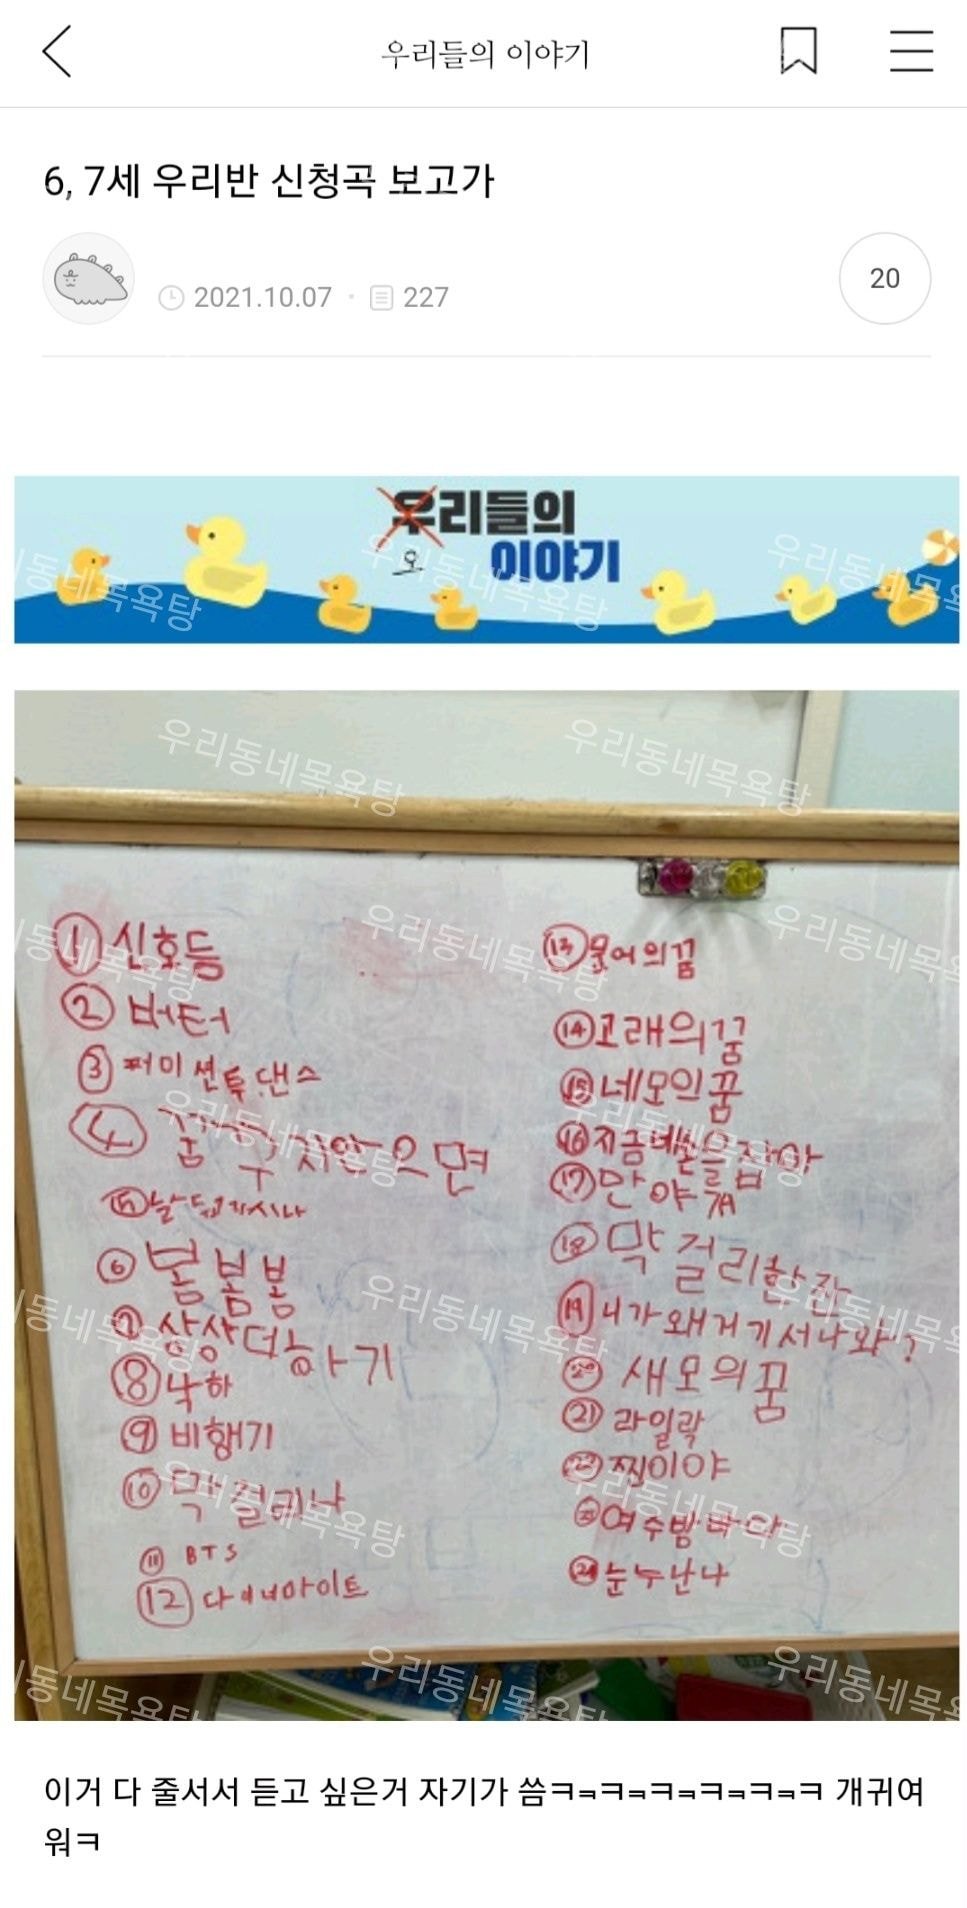 우리들의 이야기
6, 7세 우리반 신청곡 보고가
2021.10.07 · 227
20
우리들의
오
이야기
① 신호등
② 버터
③ 퍼미션투댄스
④ 꿈꾸지않으면
⑥ 봄봄봄
⑦ 상상더하기
⑧ 낙하
⑨ 비행기
⑩ 막걸리나
⑪ BTS
⑫ 다이너마이트
⑬ 문어의꿈
⑭ 고래의꿈
⑮ 네모의꿈
⑯ 지금네손을잡아
⑰ 만야개
⑱ 막걸리한잔
⑲ 니가왜거기서나와?
⑳ 새모의꿈
㉑ 라일락
㉒ 찐이야
㉓ 여수밤바다
㉔ 눈누난나
우리동네목욕탕
이거 다 줄서서 듣고 싶은거 자기가 씀ㅋㅋㅋㅋㅋㅋㅋㅋㅋㅋㅋ 개귀여
워ㅋ